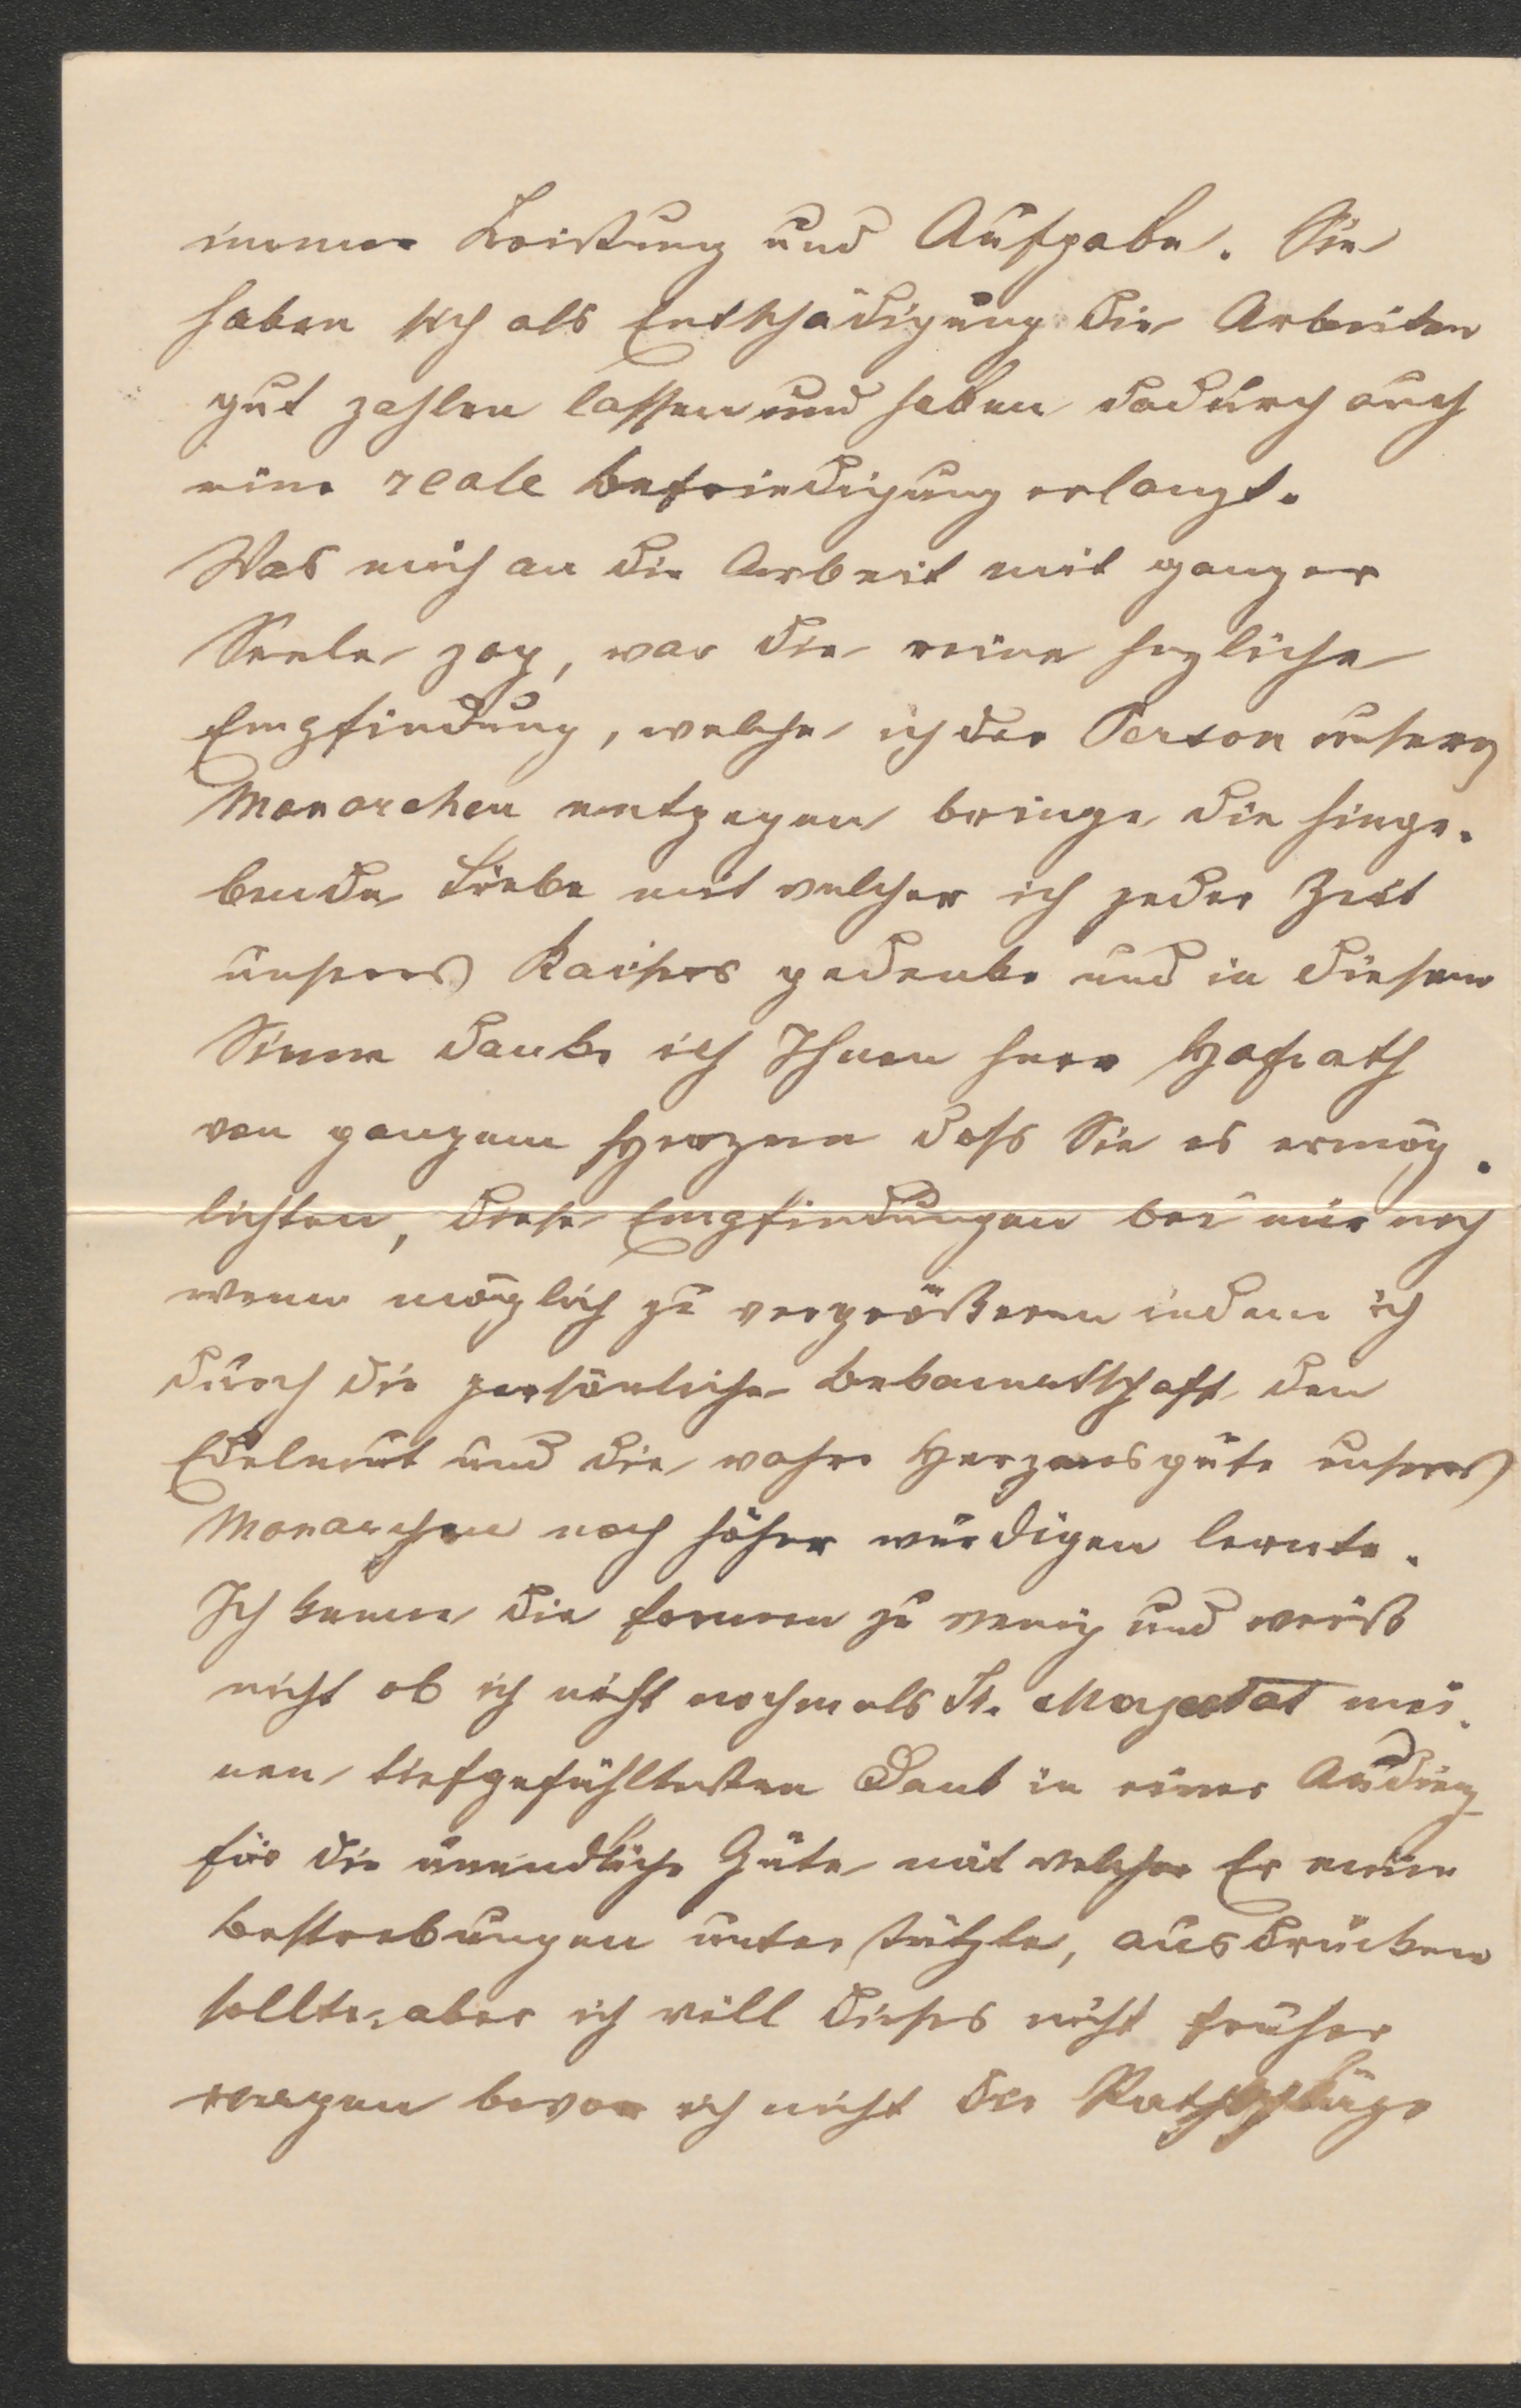 immer Leistung und Aufgabe. Sie
haben sich als Entschädigung die Arbeiten
gut zahlen lassen und haben dadurch auch
eine reale Befriedigung erlangt.
Was mich an die Arbeit mit ganzer
Seele zog, war die reine herzliche
Empfindung, welche ich der Person unseres
Monarchen entgegen bringe die hinge-
bende Liebe mit welcher ich jeder Zeit
unseres Kaisers gedenke und in diesem
Sinne danke ich Ihnen Herr Hofrath
von ganzem Herzen dass Sie es ermög-
lichten, diese Empfindungen bei mir noch
wenn möglich zu vergrößeren indem ich
durch die persönliche Bekanntschaft den
Edelmut und die wahre Herzensgüte unseres
Monarchen noch höher würdigen lernte.
Ich kenne die Formen zu wenig und weiß
nicht ob ich nicht nochmals Sr. Majestät mei-
nen tiefgefühltesten Dank in einer Audienz
für die unendliche Güte mit welcher Er meine
Bestrebungen unterstützte, ausdrücken
sollte, aber ich will dieses nicht früher
wagen bevor ich nicht die Rathschläge